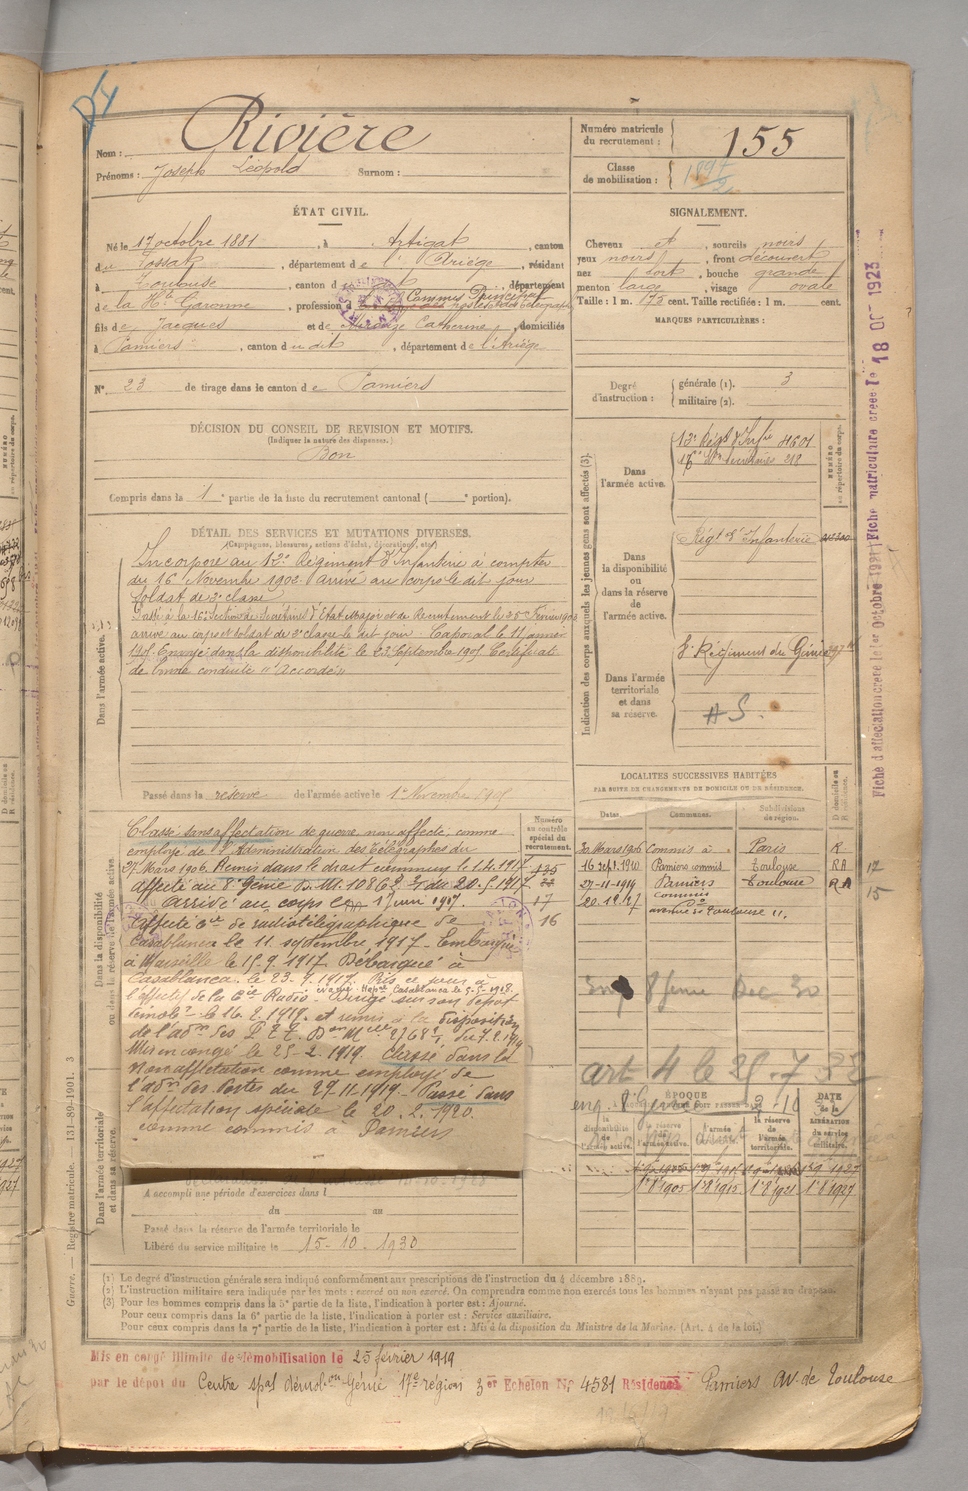 Rivière
Nom :
Prénoms : Joseph Léopold Surnom :
Numéro matricule du recrutement : 155
Classe de mobilisation : 1897/2
ÉTAT CIVIL.
Né le 17 octobre 1881, à Artigat, canton
du Fossat, département de l'Ariège, résidant
à Toulouse, canton d département
de la Hte Garonne, profession d Commis Principal des Postes et des Télégraphes
fils de Jacques et de Catherine, domiciliés
à Pamiers, canton du dit, département de l'Ariège
N° 23 de tirage dans le canton de Pamiers
SIGNALEMENT.
Cheveux et, sourcils noirs
yeux noirs, front découvert
nez fort, bouche grande
menton large, visage ovale
Taille : 1 m. 75 cent. Taille rectifiée : 1 m. cent.
MARQUES PARTICULIÈRES :
Degré d'instruction : générale (1). 3
militaire (2).
DÉCISION DU CONSEIL DE REVISION ET MOTIFS.
(Indiquer la nature des dispenses.)
Bon
Compris dans la 1e partie de la liste du recrutement cantonal ( e portion).
DÉTAIL DES SERVICES ET MUTATIONS DIVERSES.
(Campagnes, blessures, actions d'éclat, décorations, etc.)
Dans l'armée active.
Incorporé au 12e Régiment d'Infanterie à compter
du 16 Novembre 1902. Arrivé au corps le dit jour
soldat de 2e classe
Passé à la 16e Section de Secrétaires d'Etat-Major et de Recrutement le 25 Février 190
arrivé au corps et soldat de 2e classe le dit jour. Caporal le 11 janvier
1905. Envoyé dans la disponibilité le 23 Septembre 1905. Certificat
de bonne conduite "Accordé"
Passé dans la réserve de l'armée active le 1er Novembre 1905
Indication des corps auxquels les jeunes gens sont affectés (3).
Dans l'armée active.
Régt d'Infie 4601
Secrétaires 218
NUMÉRO au répertoire du corps.
Dans la disponibilité ou dans la réserve de l'armée active.
Régt d'Infanterie
Dans l'armée territoriale et dans sa réserve.
8e Régiment du Génie
A S.
Fiche d'affectation créée le 1er Octobre 1921 Fiche matriculaire créée le 18 OCT 1923
Dans la disponibilité ou dans la réserve de l'armée active.
Numéro au contrôle spécial du recrutement.
Classé sans affectation de guerre non affecté, comme
employé de l'Administration des Télégraphes du
27 Mars 1906. Remis dans le droit commun le 1.4.1917
affecté au 8e Génie D.M. 10862 du 20.5.1917
Arrivé au corps le 1 juin 1917.
Affecté Cie de radiotélégraphique de
Casablanca le 11 septembre 1917. Embarqué
à Marseille le 15-9-1917 Débarqué à
Casablanca le 23.9.1917. Pris ce jour à
évacué Hopal Casablanca le 5-5-1918.
l'effectif de la Cie Radio. Dirigé sur son dépôt
le 16.2.1919. et remis à la disposition
de l'adon des P.T.T. Don Mlle 2768 du 7.2.1919
Mis en congé le 25-2-1919. Classé dans la
non affectation comme employé de
l'adon des Postes du 27-11-1919. Passé dans
l'affectation spéciale le 20.2.1920.
comme commis à Pamiers
17
16
LOCALITÉS SUCCESSIVES HABITÉES
PAR SUITE DE CHANGEMENTS DE DOMICILE OU DE RÉSIDENCE.
Dates. Communes. Subdivisions de région. D domicile ou R résidence.
20 Mars 1906 Commis à Paris R
16 sept. 1910 Pamiers commis Toulouse RA 17
27-11-1919 Pamiers Toulouse RA 15
20.12.27 commis avenue de Toulouse 11.
8 Génie Dec 30
art 4 le 25.7.32
ÉPOQUE
DATE de la LIBÉRATION du service militaire.
la disponibilité de l'armée active.
la réserve de l'armée active.
l'armée territoriale.
la réserve de l'armée territoriale.
1°8°1905 1°8°1915 1°8°1921 1°8°1927
Dans l'armée territoriale et dans sa réserve.
A accompli une période d'exercices dans l
du au
Passé dans la réserve de l'armée territoriale le
Libéré du service militaire le 15-10-1930
(1) Le degré d'instruction générale sera indiqué conformément aux prescriptions de l'instruction du 4 décembre 1889.
(2) L'instruction militaire sera indiquée par les mots : exercé ou non exercé. On comprendra comme non exercés tous les hommes n'ayant pas passé au drapeau.
(3) Pour les hommes compris dans la 5e partie de la liste, l'indication à porter est : Ajourné.
Pour ceux compris dans la 6e partie de la liste, l'indication à porter est : Service auxiliaire.
Pour ceux compris dans la 7e partie de la liste, l'indication à porter est : Mis à la disposition du Ministre de la Marine. (Art. 4 de la loi.)
Guerre. — Registre matricule. — 131-89-1901. 3
Mis en congé illimité de démobilisation le 25 février 1919
par le dépôt du Centre spal démobon Génie 17e région 3er Echelon N° 4581 Résidence Pamiers av. de Toulouse